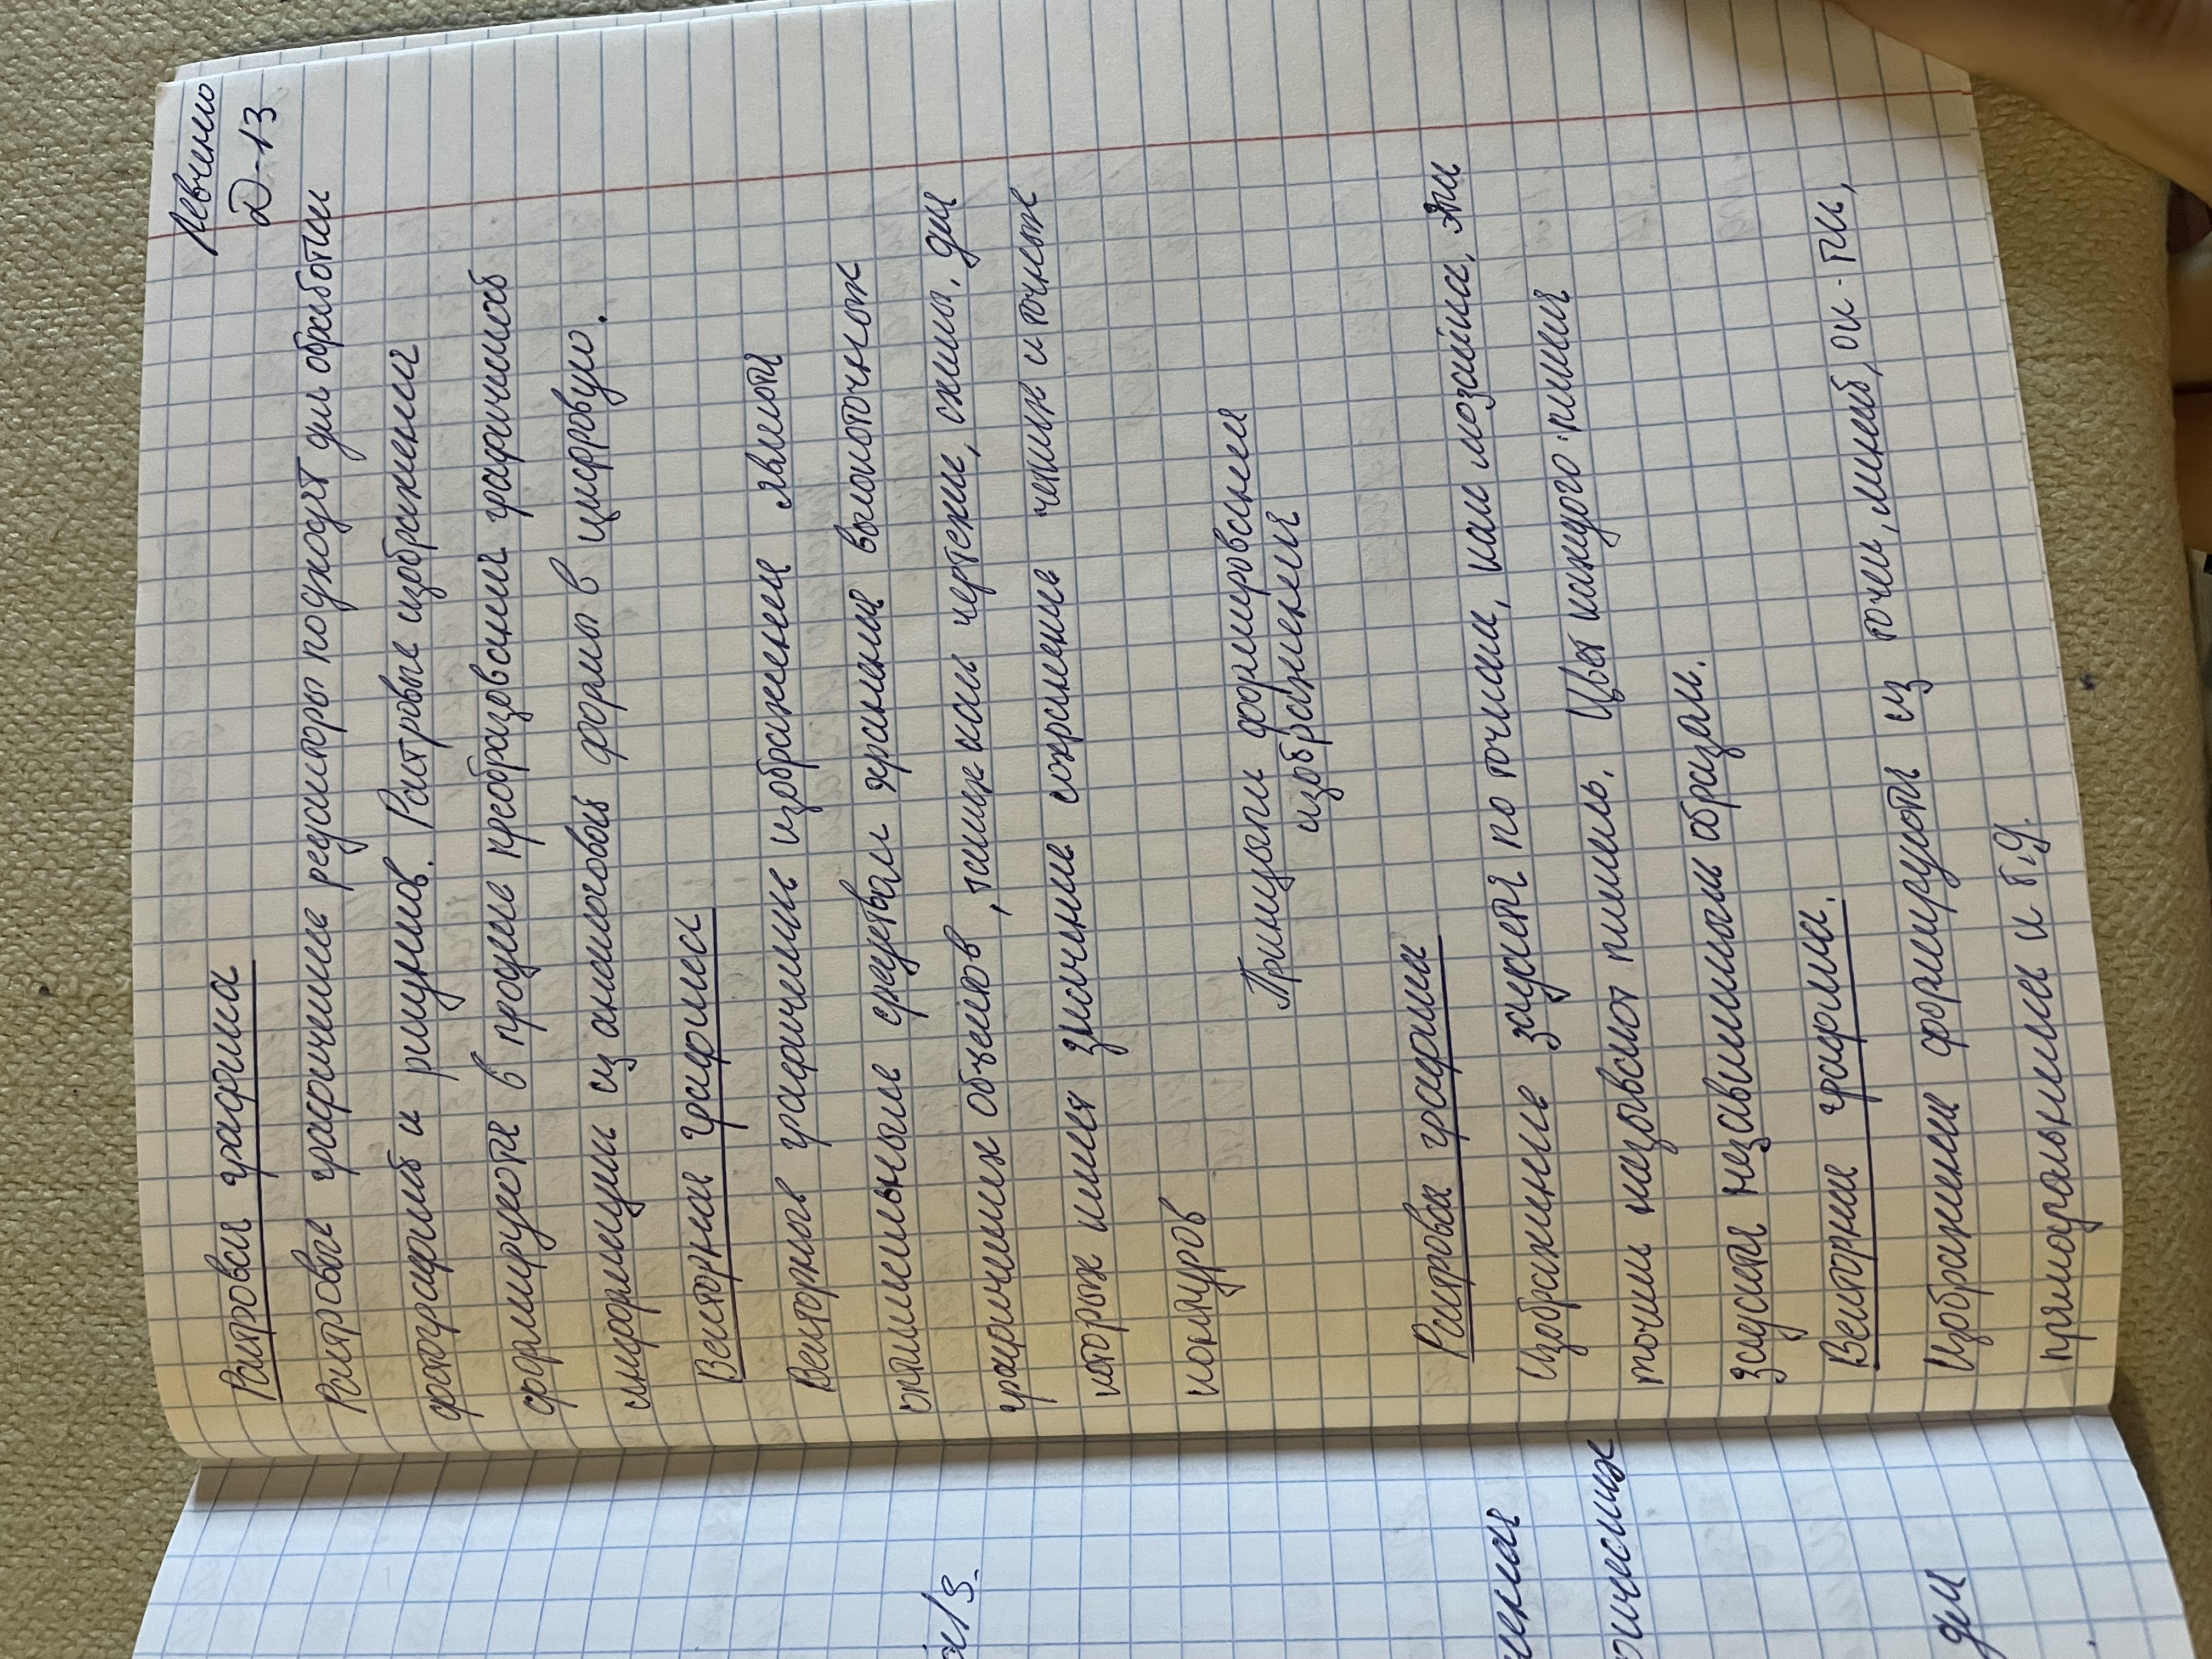 Левченко
D-13
Растровая графика
Растровые графические редакторы подходят для обработки
фотографий и рисунков. Растровые изображения
формируются в процессе преобразования графической
информации из аналоговой формы в цифровую.
Векторная графика
Векторные графические изображения являются
оптимальными средствами хранения высокоточных
графических объектов, таких как чертежи, схемы, для
которых имеет значение сохранение четких и точных
контуров
Принцыпы формирования
изображения
Растровая графика
Изображение задается по точкам, как мозаика, эти
точки называют пиксель. Цвет каждого пикселя
задается независимым образом.
Векторная графика.
Изображения формируются из точек, линий, ок-тей,
прямоугольников и т.д.